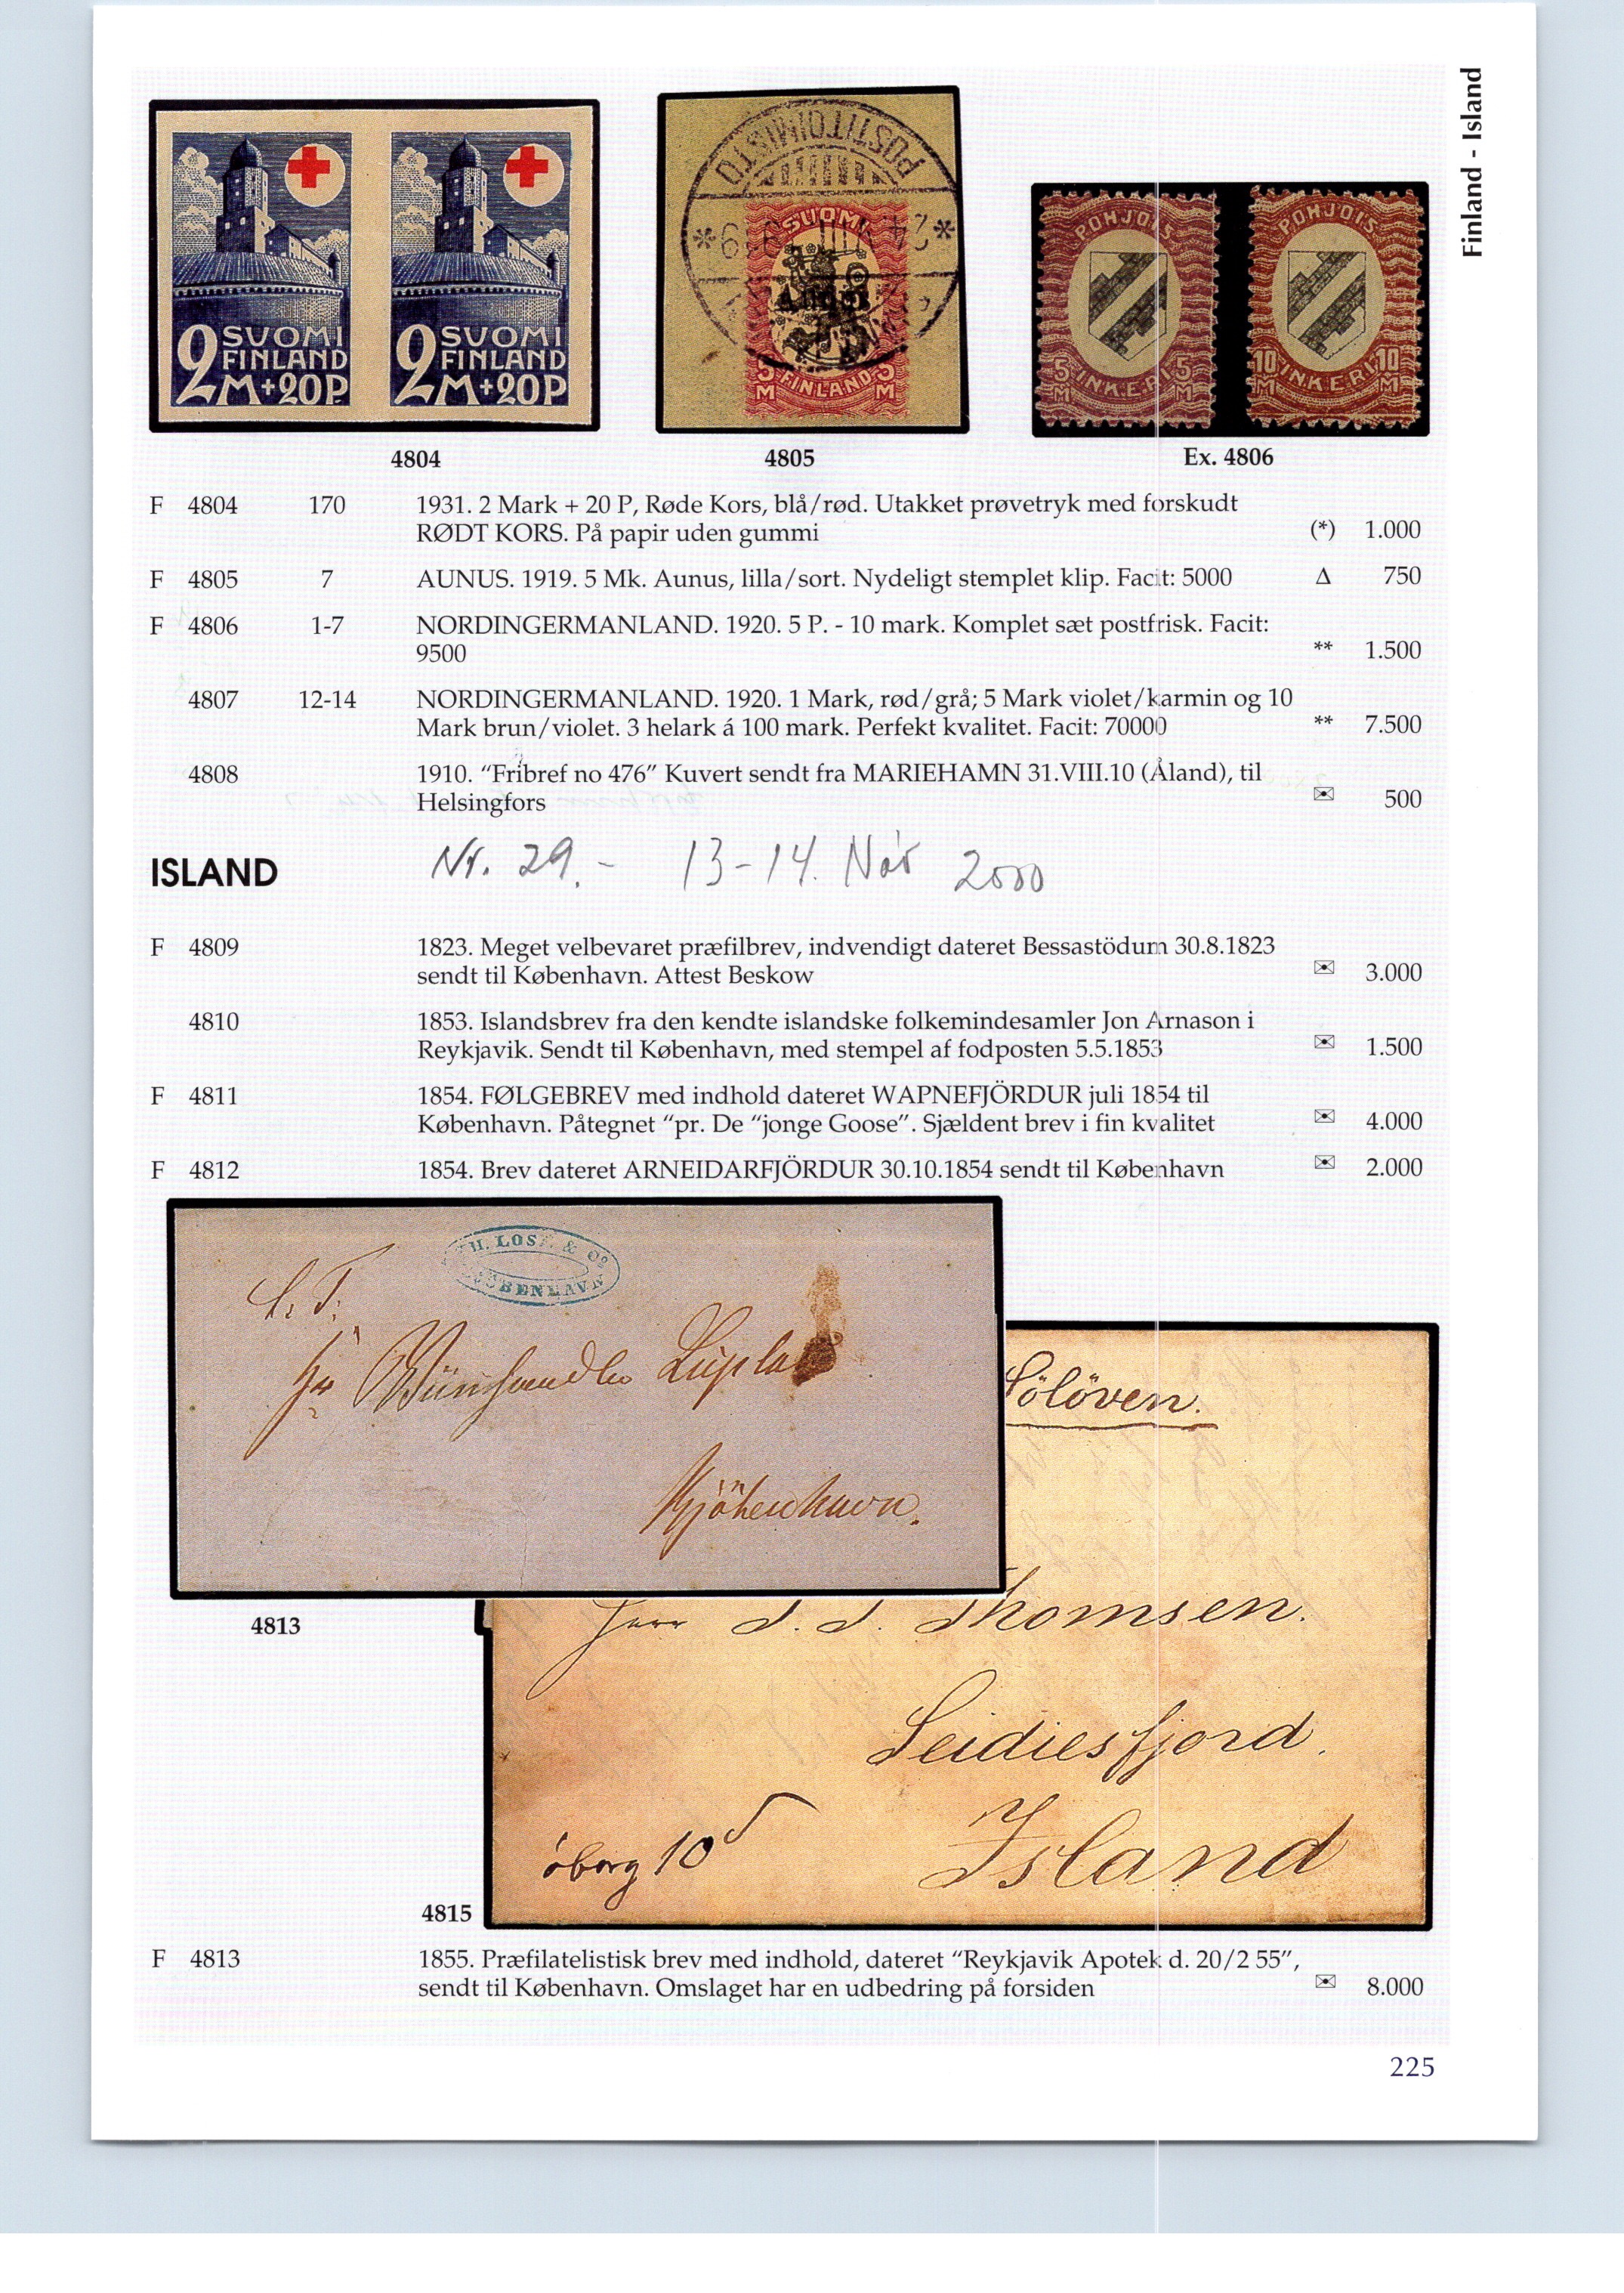 Finland - Island
SUOMI
FINLAND
2 M+20P
SUOMI
FINLAND
2 M+20P
POSTITOIMISTO
SUOMI
Aunus
5 M FINLAND 5 M
POHJOIS
5 M INKERI 5 M
POHJOIS
10 M INKERI 10 M
4804
4805
Ex. 4806
F 4804 170 1931. 2 Mark + 20 P, Røde Kors, blå/rød. Utakket prøvetryk med forskudt
RØDT KORS. På papir uden gummi (*) 1.000
F 4805 7 AUNUS. 1919. 5 Mk. Aunus, lilla/sort. Nydeligt stemplet klip. Facit: 5000 Δ 750
F 4806 1-7 NORDINGERMANLAND. 1920. 5 P. - 10 mark. Komplet sæt postfrisk. Facit:
9500 ** 1.500
4807 12-14 NORDINGERMANLAND. 1920. 1 Mark, rød/grå; 5 Mark violet/karmin og 10
Mark brun/violet. 3 helark á 100 mark. Perfekt kvalitet. Facit: 70000 ** 7.500
4808 1910. “Fribref no 476” Kuvert sendt fra MARIEHAMN 31.VIII.10 (Åland), til
Helsingfors ✉ 500
ISLAND
Nr. 29. - 13-14. Nóv 2000
F 4809 1823. Meget velbevaret præfilbrev, indvendigt dateret Bessastödum 30.8.1823
sendt til København. Attest Beskow ✉ 3.000
4810 1853. Islandsbrev fra den kendte islandske folkemindesamler Jon Arnason i
Reykjavik. Sendt til København, med stempel af fodposten 5.5.1853 ✉ 1.500
F 4811 1854. FØLGEBREV med indhold dateret WAPNEFJÖRDUR juli 1854 til
København. Påtegnet “pr. De “jonge Goose”. Sjældent brev i fin kvalitet ✉ 4.000
F 4812 1854. Brev dateret ARNEIDARFJÖRDUR 30.10.1854 sendt til København ✉ 2.000
H. LOSE & Co
KJÖBENHAVN
S. T.
Kjöbenhavn.
Sölöven.
Herr T. T. Thomsen.
Seidiesfjord.
Island
4813
4815
F 4813 1855. Præfilatelistisk brev med indhold, dateret “Reykjavik Apotek d. 20/2 55”,
sendt til København. Omslaget har en udbedring på forsiden ✉ 8.000
225